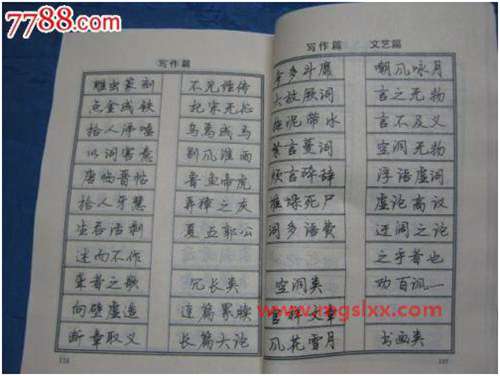 7788.com
写作篇
雕虫篆刻
点金成铁
拾人涕唾
以词害意
唐临晋帖
拾人牙慧
生吞活剥
述而不作
聋者之歌
向壁虚造
断章取义
不见经传
杞宋无征
乌焉成马
别风淮雨
鲁鱼帝虎
夏五郭公
冗长类
连篇累牍
长篇大论
写作篇 文艺篇
大放厥词
拖泥带水
繁言蔓词
烦言碎辞
堆垛死尸
词多语费
空洞类
官样文章
风花雪月
嘲风咏月
言之无物
言不及义
空洞无物
浮语虚词
虚论高议
迂阔之论
之乎者也
劝百讽一
书画类
www.mgslxx.com